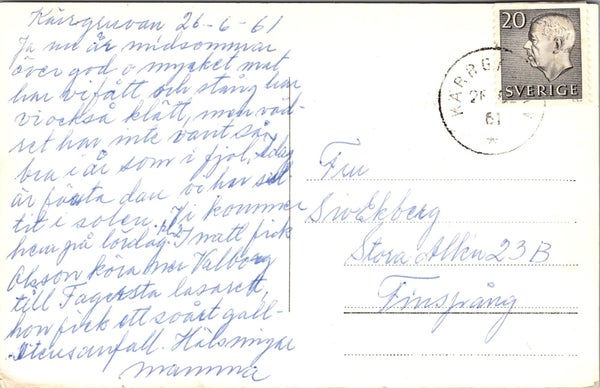 Kärrgruvan 26-6-61
Ja nu är midsommar
över god o mycket mat
har vi fått och stång har
vi också klätt, men väd-
ret har inte varit så
bra i år som i fjol, idag
är första dan vi har
tit i solen. Vi kommer
hem på lördag. I natt fick
Olsson köra mer Valborg
till Fagersta lasarett,
hon fick ett svårt gall-
stensanfall. Hälsningar
mamma
20
SVERIGE
KÄRRGR
26
61
Fru
Sv Ekberg
Stora Allén 23 B
Finspång